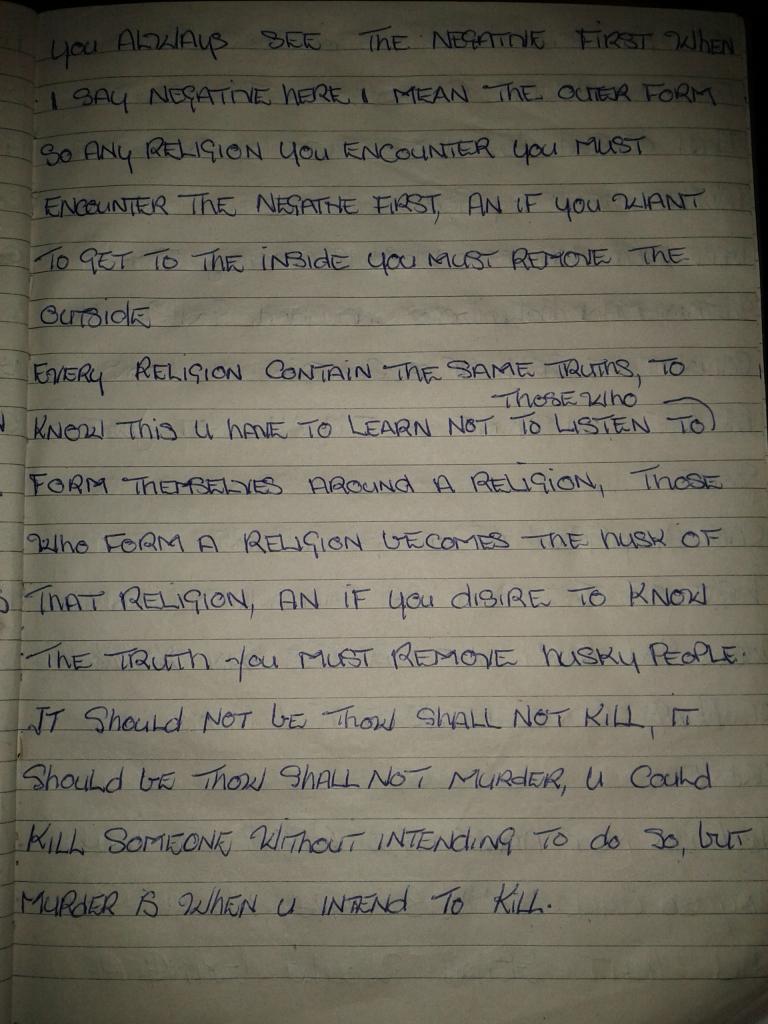 you ALWAYS SEE THE NEGATIVE FIRST WHEN
I SAY NEGATIVE HERE I MEAN THE OUTER FORM
SO ANY RELIGION YOU ENCOUNTER YOU MUST
ENCOUNTER THE NEGATIVE FIRST, AN IF YOU WANT
TO GET TO THE INSIDE YOU MUST REMOVE THE
OUTSIDE
EVERY RELIGION CONTAIN THE SAME TRUTHS, TO
THOSE WHO
KNOW THIS U HAVE TO LEARN NOT TO LISTEN TO
FORM THEMSELVES AROUND A RELIGION, THOSE
WHO FORM A RELIGION BECOMES THE HUSK OF
THAT RELIGION, AN IF YOU DISIRE TO KNOW
THE TRUTH YOU MUST REMOVE HUSKY PEOPLE.
IT SHOULD NOT BE THOW SHALL NOT KILL, IT
SHOULD BE THOW SHALL NOT MURDER, U COULD
KILL SOMEONE WITHOUT INTENDING TO do SO, BUT
MURDER IS WHEN U INTEND TO KILL.